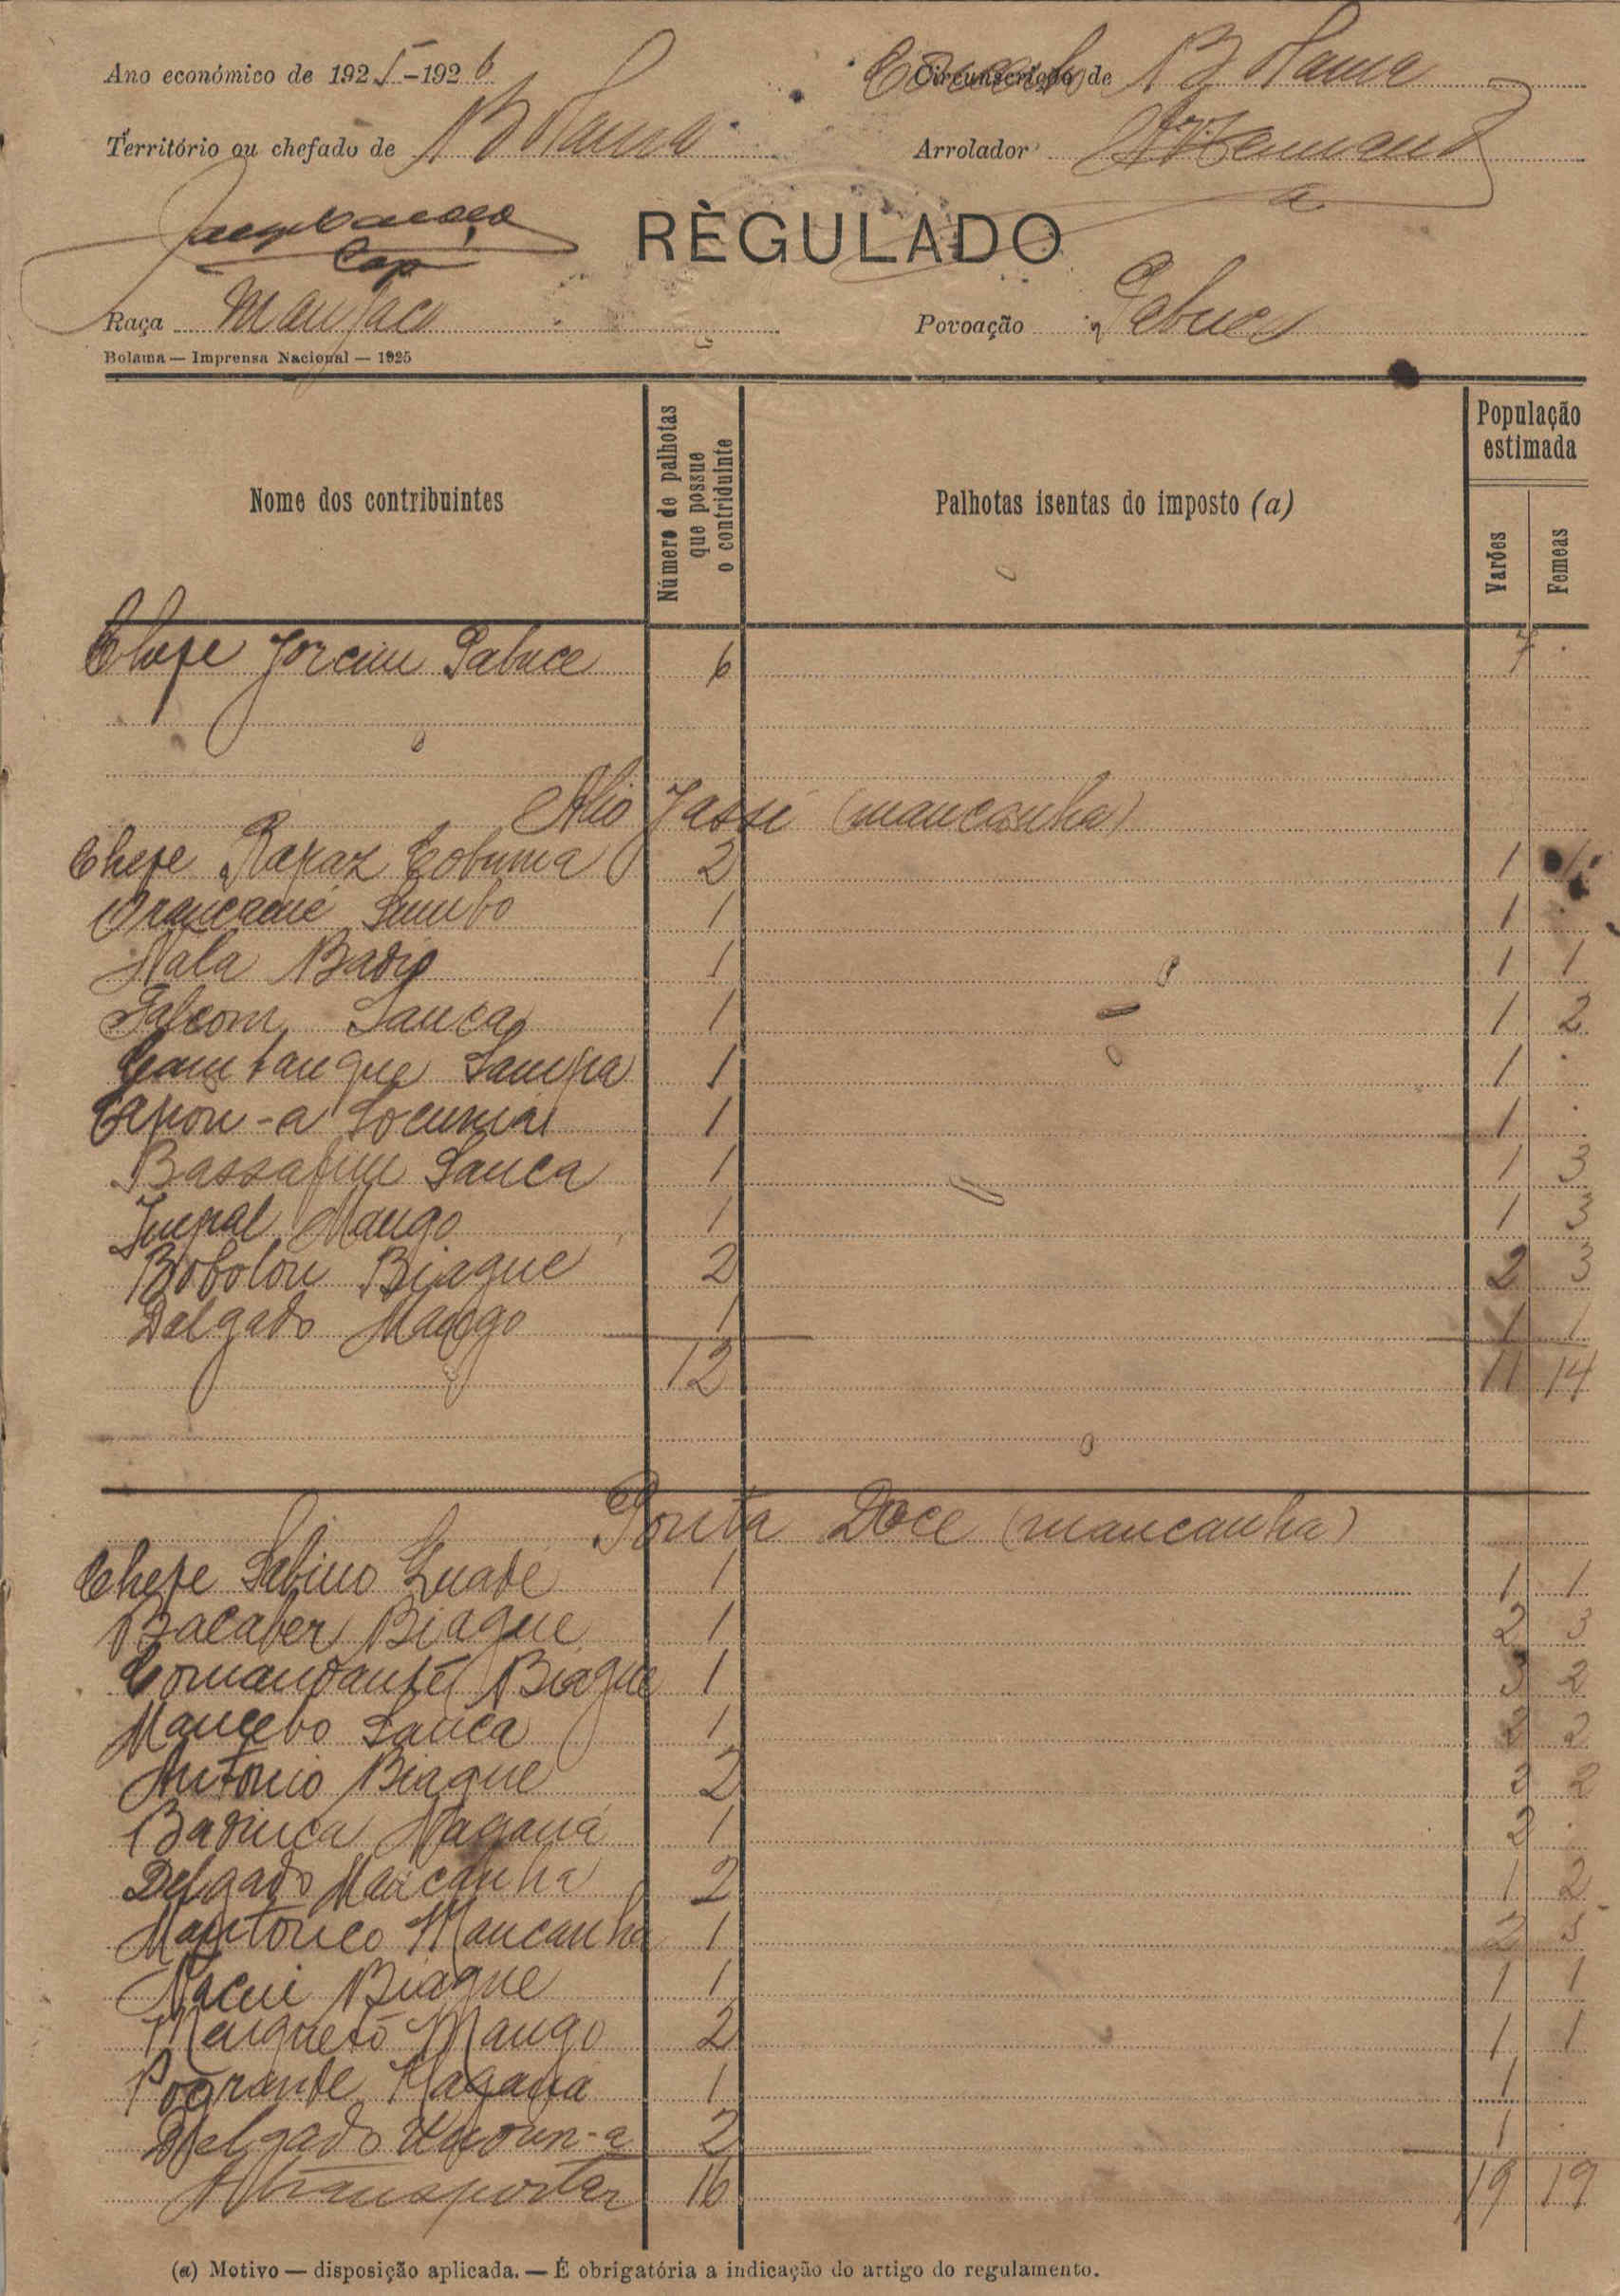 Ano económico de 1925-1926 Concelho de Bolama
Território ou chefado de Bolama Arrolador
RÈGULADO
Cap
Raça Manjaco Povoação Gabuer
Bolama — Imprensa Nacional — 1925
Nome dos contribuintes
Número de palhotas que possue o contriduinte
Palhotas isentas do imposto (a)
População estimada
Varões Femeas
Chefe 6 7
Alio Jassi (mancanha)
Chefe Rapaz Cobuma 2 1 1
Sumbo 1 1
Nala Badio 1 1 1
Falcom Sanca 1 1 2
Gambangue Sampa 1 1
Capon-a Socumai 1 1
Bassafim Sanca 1 1 3
Jugral Mango 1 1 3
Bobolon Biague 2 2 3
Delgado Mango 1 1 1
12 11 14
Ponta Doce (mancanha)
Chefe Sabino Quadé 1 1 1
Bacaber Biague 1 2 3
Comandante Biague 1 3 2
Mancebo Sanca 1 2 2
António Biague 2 2 2
Badinca Nagana 1 2
Delgado Mancanha 2 1 2
Mantonco Mancanha 1 2 5
Nacui Biague 1 1 1
Mangueto Mango 2 1 1
Pogrande Nagana 1 1
Delgado 2 1
A transportar 16 19 19
(a) Motivo — disposição aplicada. — É obrigatória a indicação do artigo do regulamento.